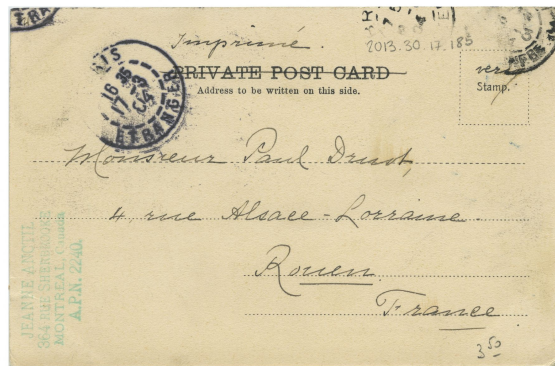 2013.30.17.185
Imprimé.
PRIVATE POST CARD
Address to be written on this side.
ver
Stamp.
16 35
17
04
ETRANGER
Monsieur Paul Drust
4, rue Alsace-Lorraine.
Rouen
France
3 50
JEANNE ANCTIL
364 RUE SHERBROOKE
MONTREAL, Canada
A.P.N. 2240.